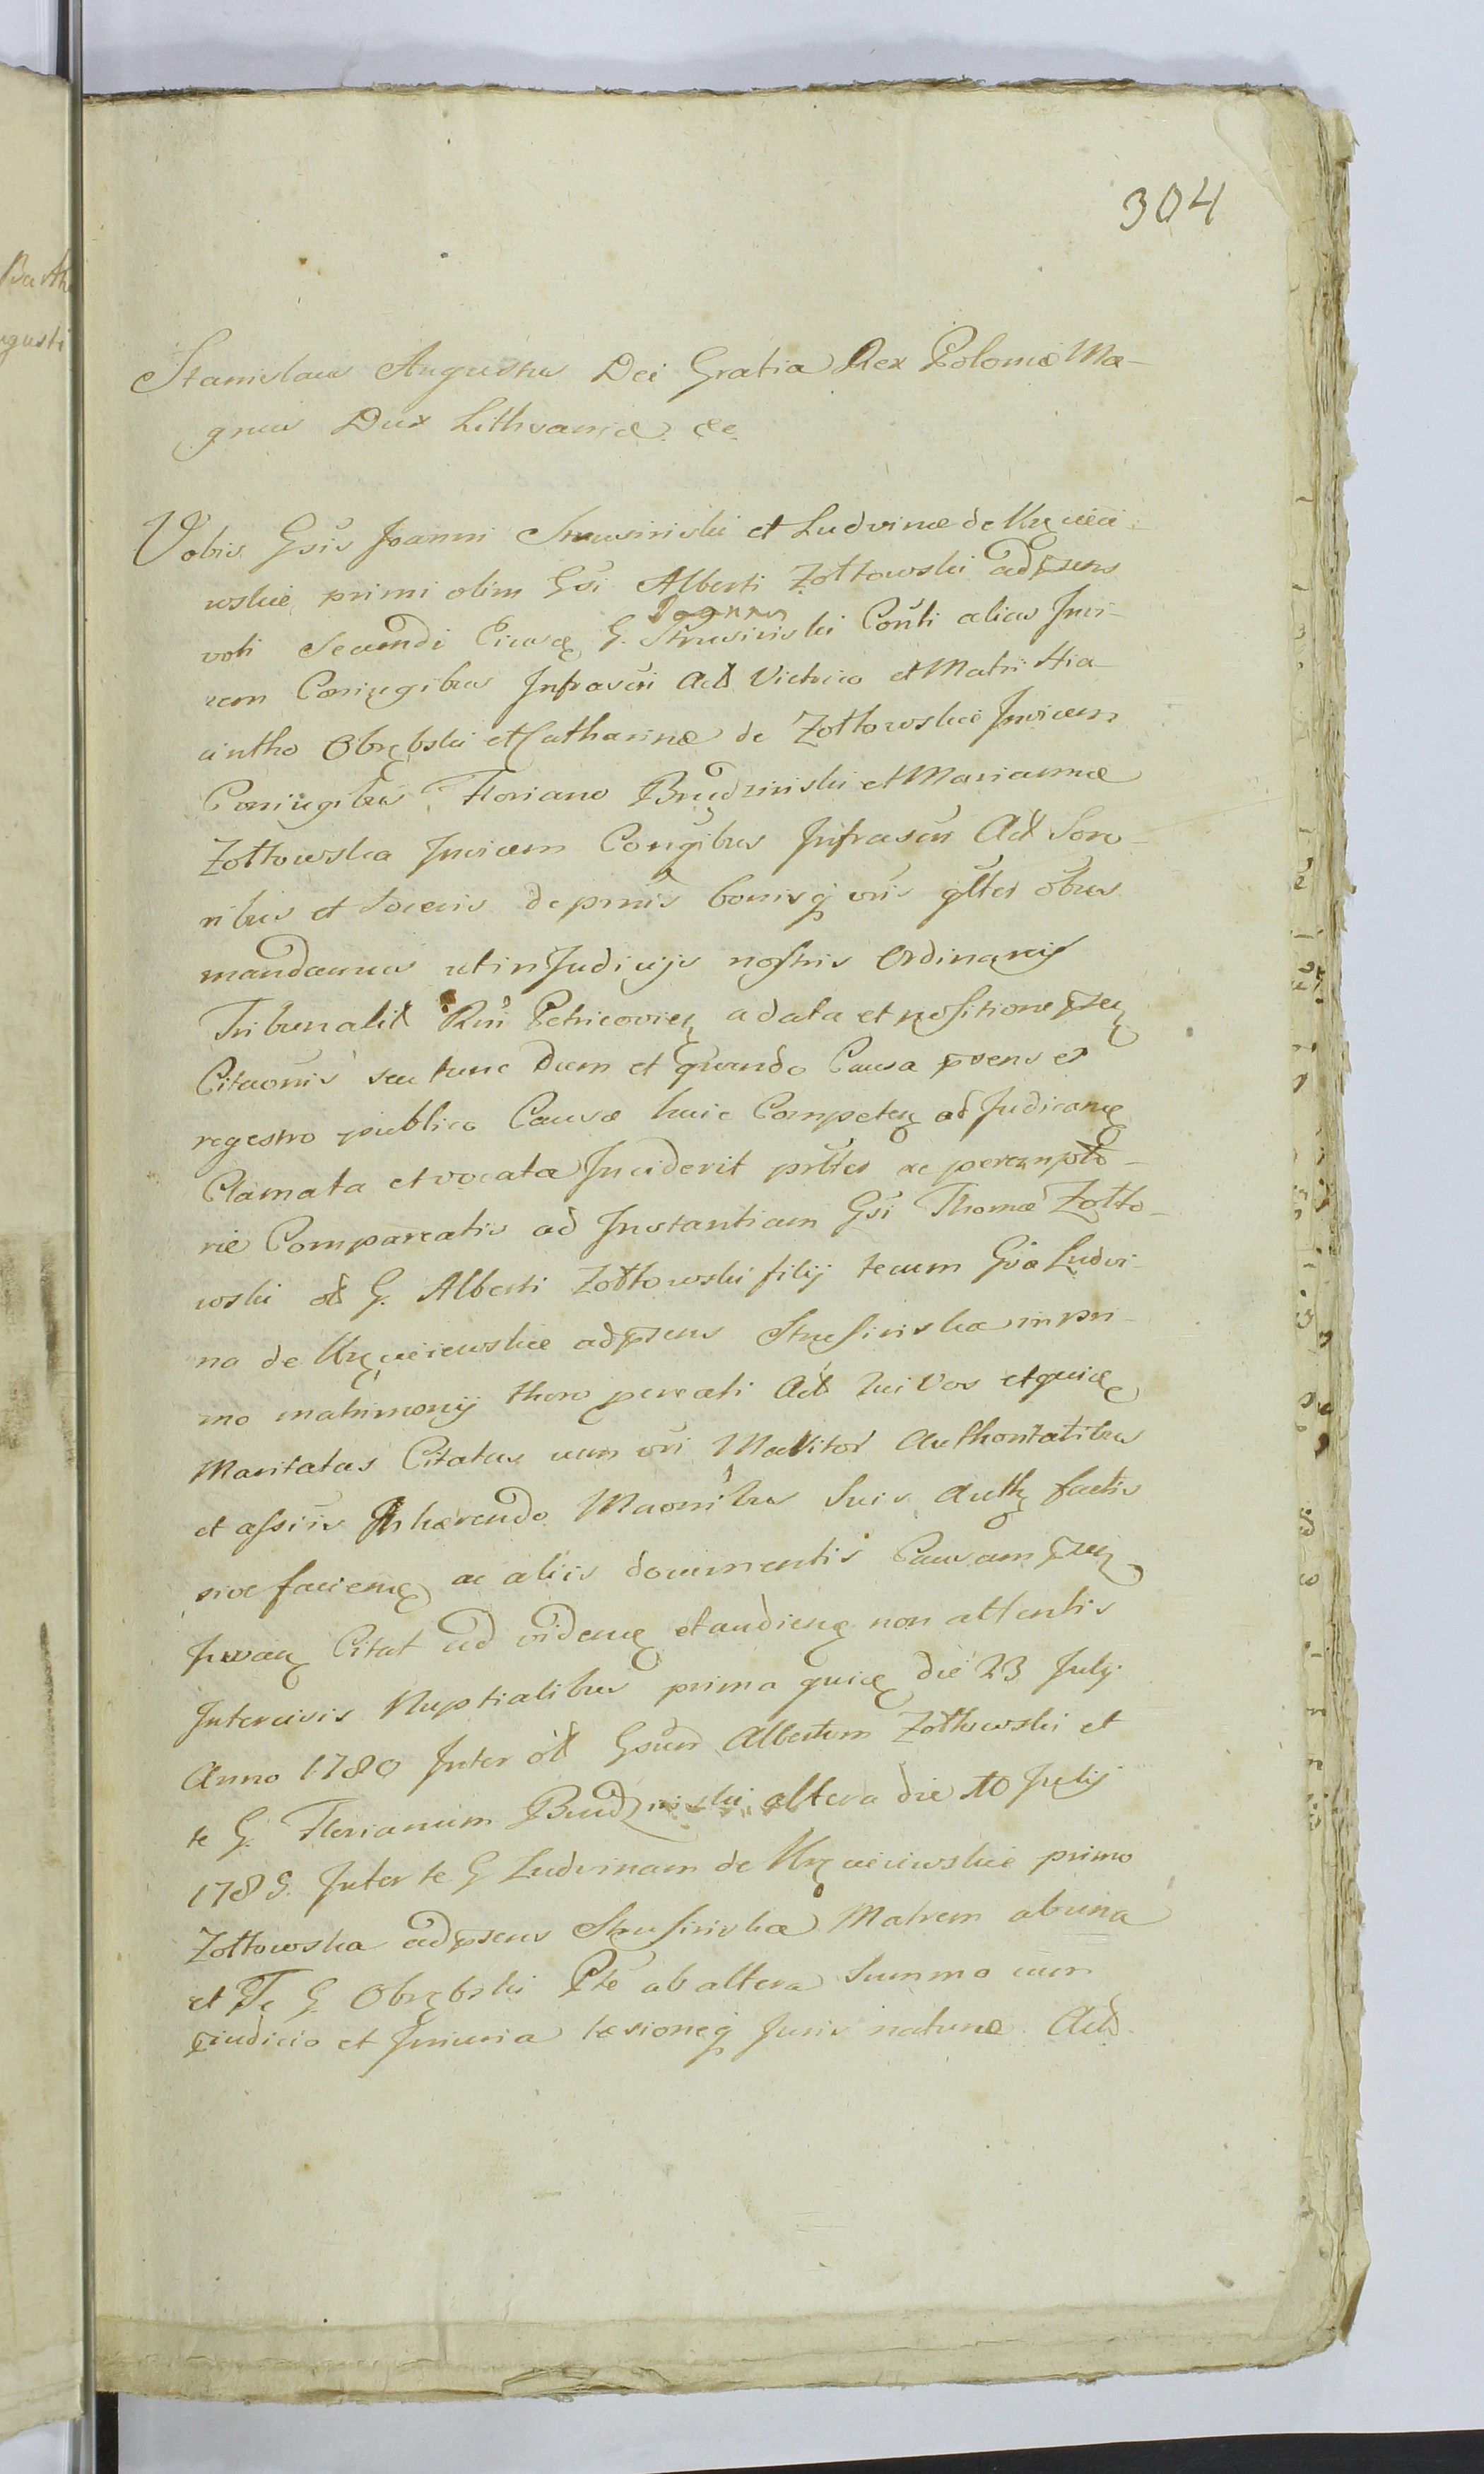 304
Stanislaus Augustus Dei Gratia Rex Poloniæ Ma-
gnus Dux Lithvaniæ &c.
Vobis Gsis Joanni Strusiński et Ludvinæ de
wskie primi olim Gsi Alberti Zołtowski adpsens
Joannis
voti Secundi G. Strusiński Conti alias Invi-
cem Coniugibus Infrascri Act Vitrico et Matri Hia-
cintho Obrębski et Catharinæ de Zołtowskie Invicem
Coniugibus Floriano Brudziński et Mariannæ
Zołtowska Invicem Congibus Infrascri Act Soro-
ribus et Sociis de pmis bonisq vris gltes obus
mandamus ut in Judicijs nostris Ordinarijs
Tribunalit Rni Petricovien a data et positione psen
Citaonis seu tunc dum et quando Causa psens ex
regestro publico Causæ huic Competen ad Judicand
Clamata et vocata Inciderit prltes ac perempto-
rie Compareatis ad Instantiam Gsi Thomæ Zołto-
wski ol G. Alberti Zołtowski filij tecum Gsa Ludvi-
na de adpsens Strusińska in pri-
mo matrimonij thoro Act Qui Vos et quidem
Maritatas Citatas cum vri Maritor Authoritatibus
et assiis Inhærendo Maonibus Suis Auth factis
sive faciend ac aliis documentis Causam psen
Juvan Citat ad vidend et audiend non attentis
Intercisis Nuptialibus prima quid die 23 Julij
Anno 1780 Inter ol Gsum Albertum Zołtowski et
te G. Florianum Brudziński altera die 10 Julij
1789. Inter te G Ludvinam de primo
Zołtowska adpsens Strusińska Matrem ab una
et Te G Obrębski Pte ab altera Summo cum
pjudicio et Iniuria læsioneq Juris naturæ Act